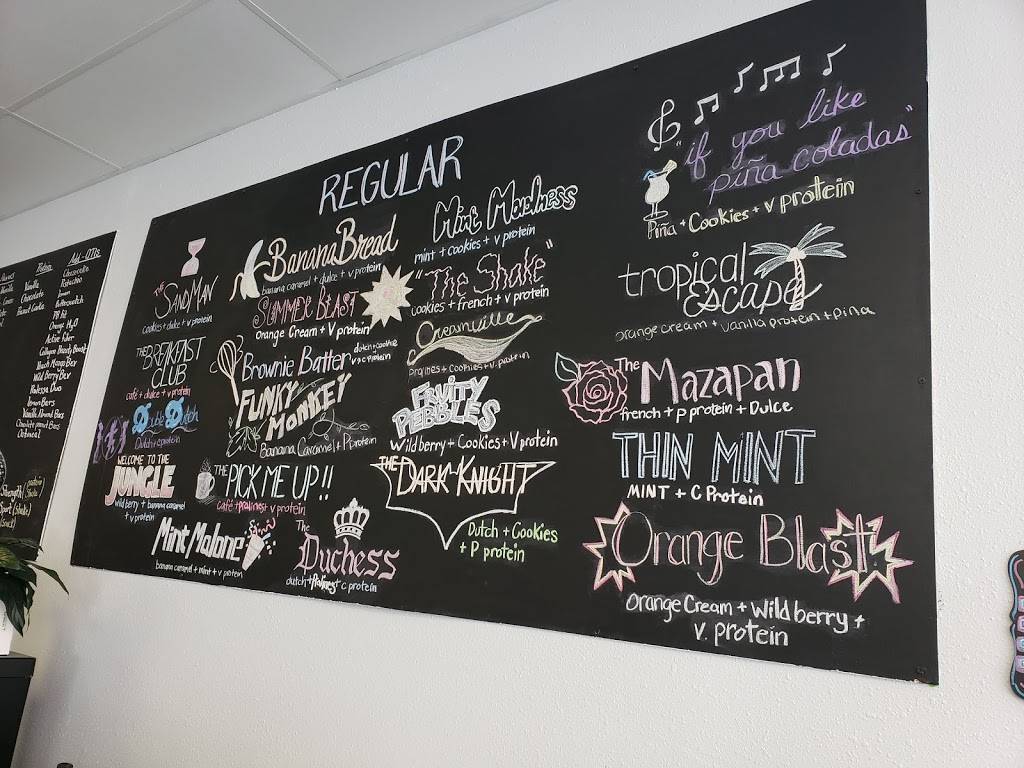 REGULAR
The
SANDMAN
cookies + dulce + v protein
THE BREAKFAST
CLUB
café + dulce + v protein
Double Dutch
WELCOME TO THE
JUNGLE
wild berry + banana caramel
+ v protein
Mint Malone
banana caramel + mint + v protein
BananaBread
banana caramel + dulce + v protein
SUMMER BLAST
Orange Cream + V protein
Brownie Batter
dutch + cookie
v, c protein
FUNKY
MONKEY
Banana Caramel + P Protein
THE PICK ME UP!!
café + pralines + v protein
The
Duchess
dutch + pralines + c protein
Mint Madness
mint + cookies + v protein
"The Shake"
cookies + french + v protein
Creamville
pralines + cookies + v. protein
FRUITY
PEBBLES
Wild berry + Cookies + V protein
THE DARK KNIGHT
Dutch + Cookies
+ P protein
"if you like
piña coladas"
Piña + Cookies + v protein
tropical
Escape
orange cream + vanilla protein + piña
The Mazapan
french + p protein + Dulce
THIN MINT
MINT + C Protein
Orange Blast
Orange Cream + Wild berry +
v. protein
Add-ONs
Vanilla
Chocolate
Cheesecake
Pistachio
Lemon
Butterscotch
PB Fit
Orange H2O
Active Fiber
Collagen Beauty Boost
Peach Mango Bev
Wild Berry Bev
Lemon Bars
Vanilla Almond Bars
Chocolate peanut Bars
Oatmeal